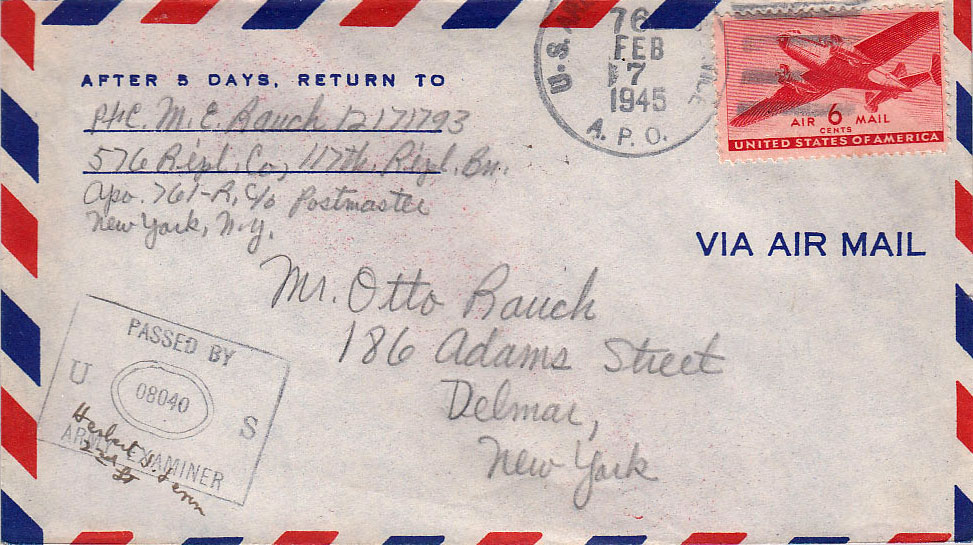 AFTER 5 DAYS, RETURN TO
Pfc. M. E. Rauch 12171793
576 Repl. Co, 117th Repl. Bn.
Apo. 761-R, c/o Postmaster
New York, N.Y.
U.S.
76
FEB
7
1945
A.P.O.
AIR 6 MAIL
CENTS
UNITED STATES OF AMERICA
VIA AIR MAIL
Mr. Otto Rauch
186 Adams Street
Delmar,
New York
PASSED BY
U 08040 S
ARMY EXAMINER
Herbert
2nd Lt